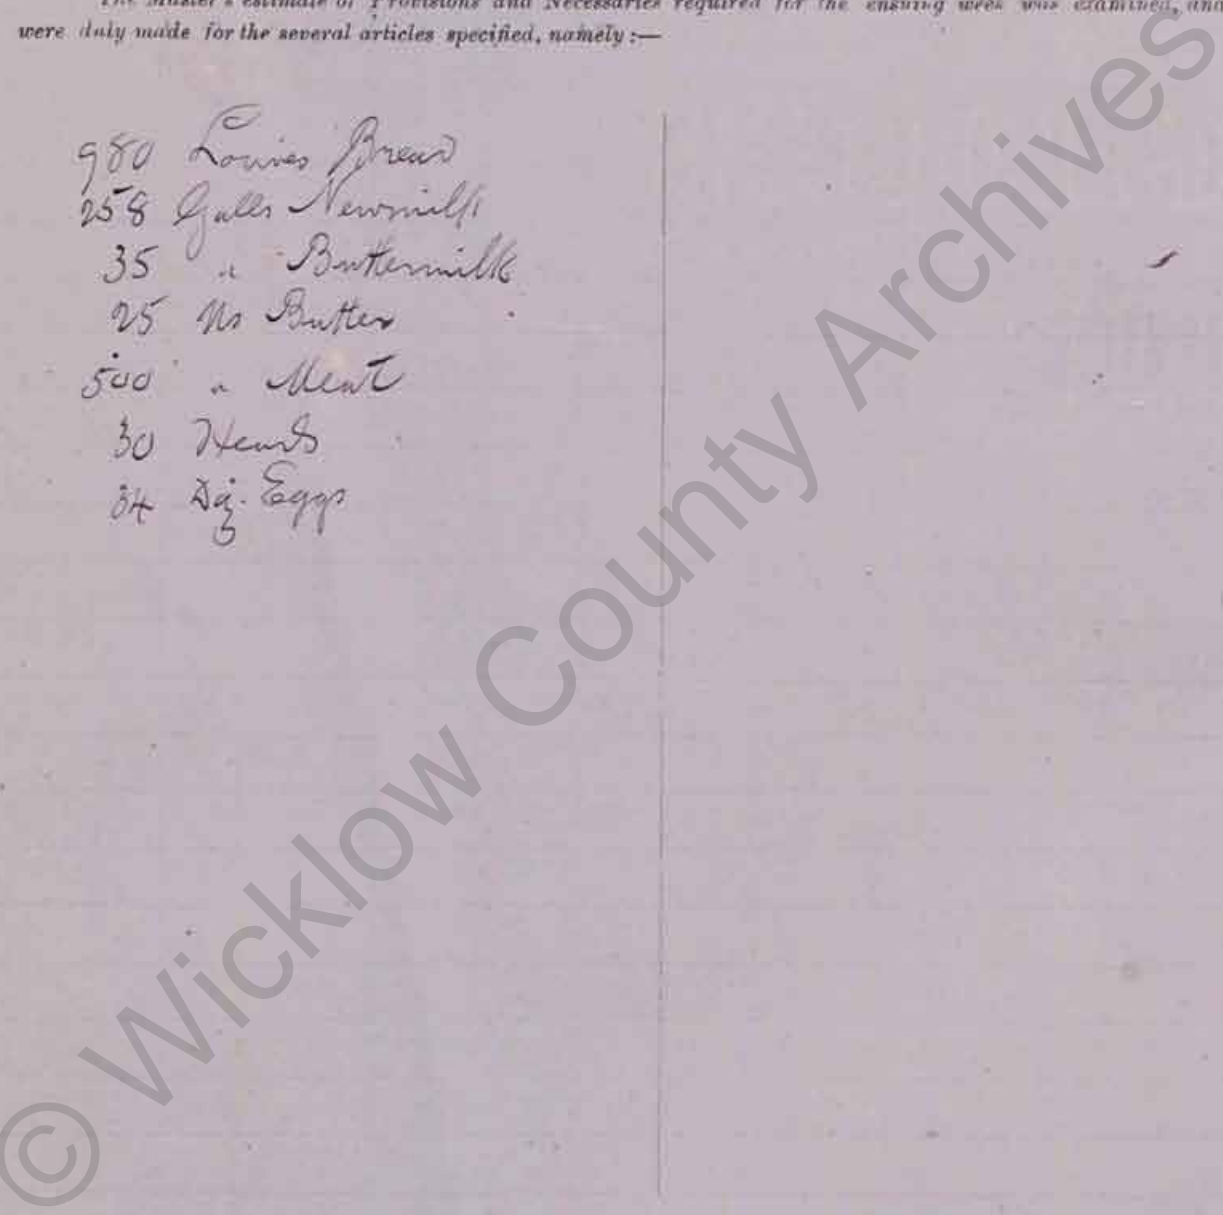 The Master's estimate of Provisions and Necessaries required for the ensuing week was examined, and
were duly made for the several articles specified, namely:—
980 Loaves Bread
258 Galls Newmilk
35 " Buttermilk
25 lbs Butter
500 " Meat
30 Heads
34 Doz. Eggs
© Wicklow County Archives